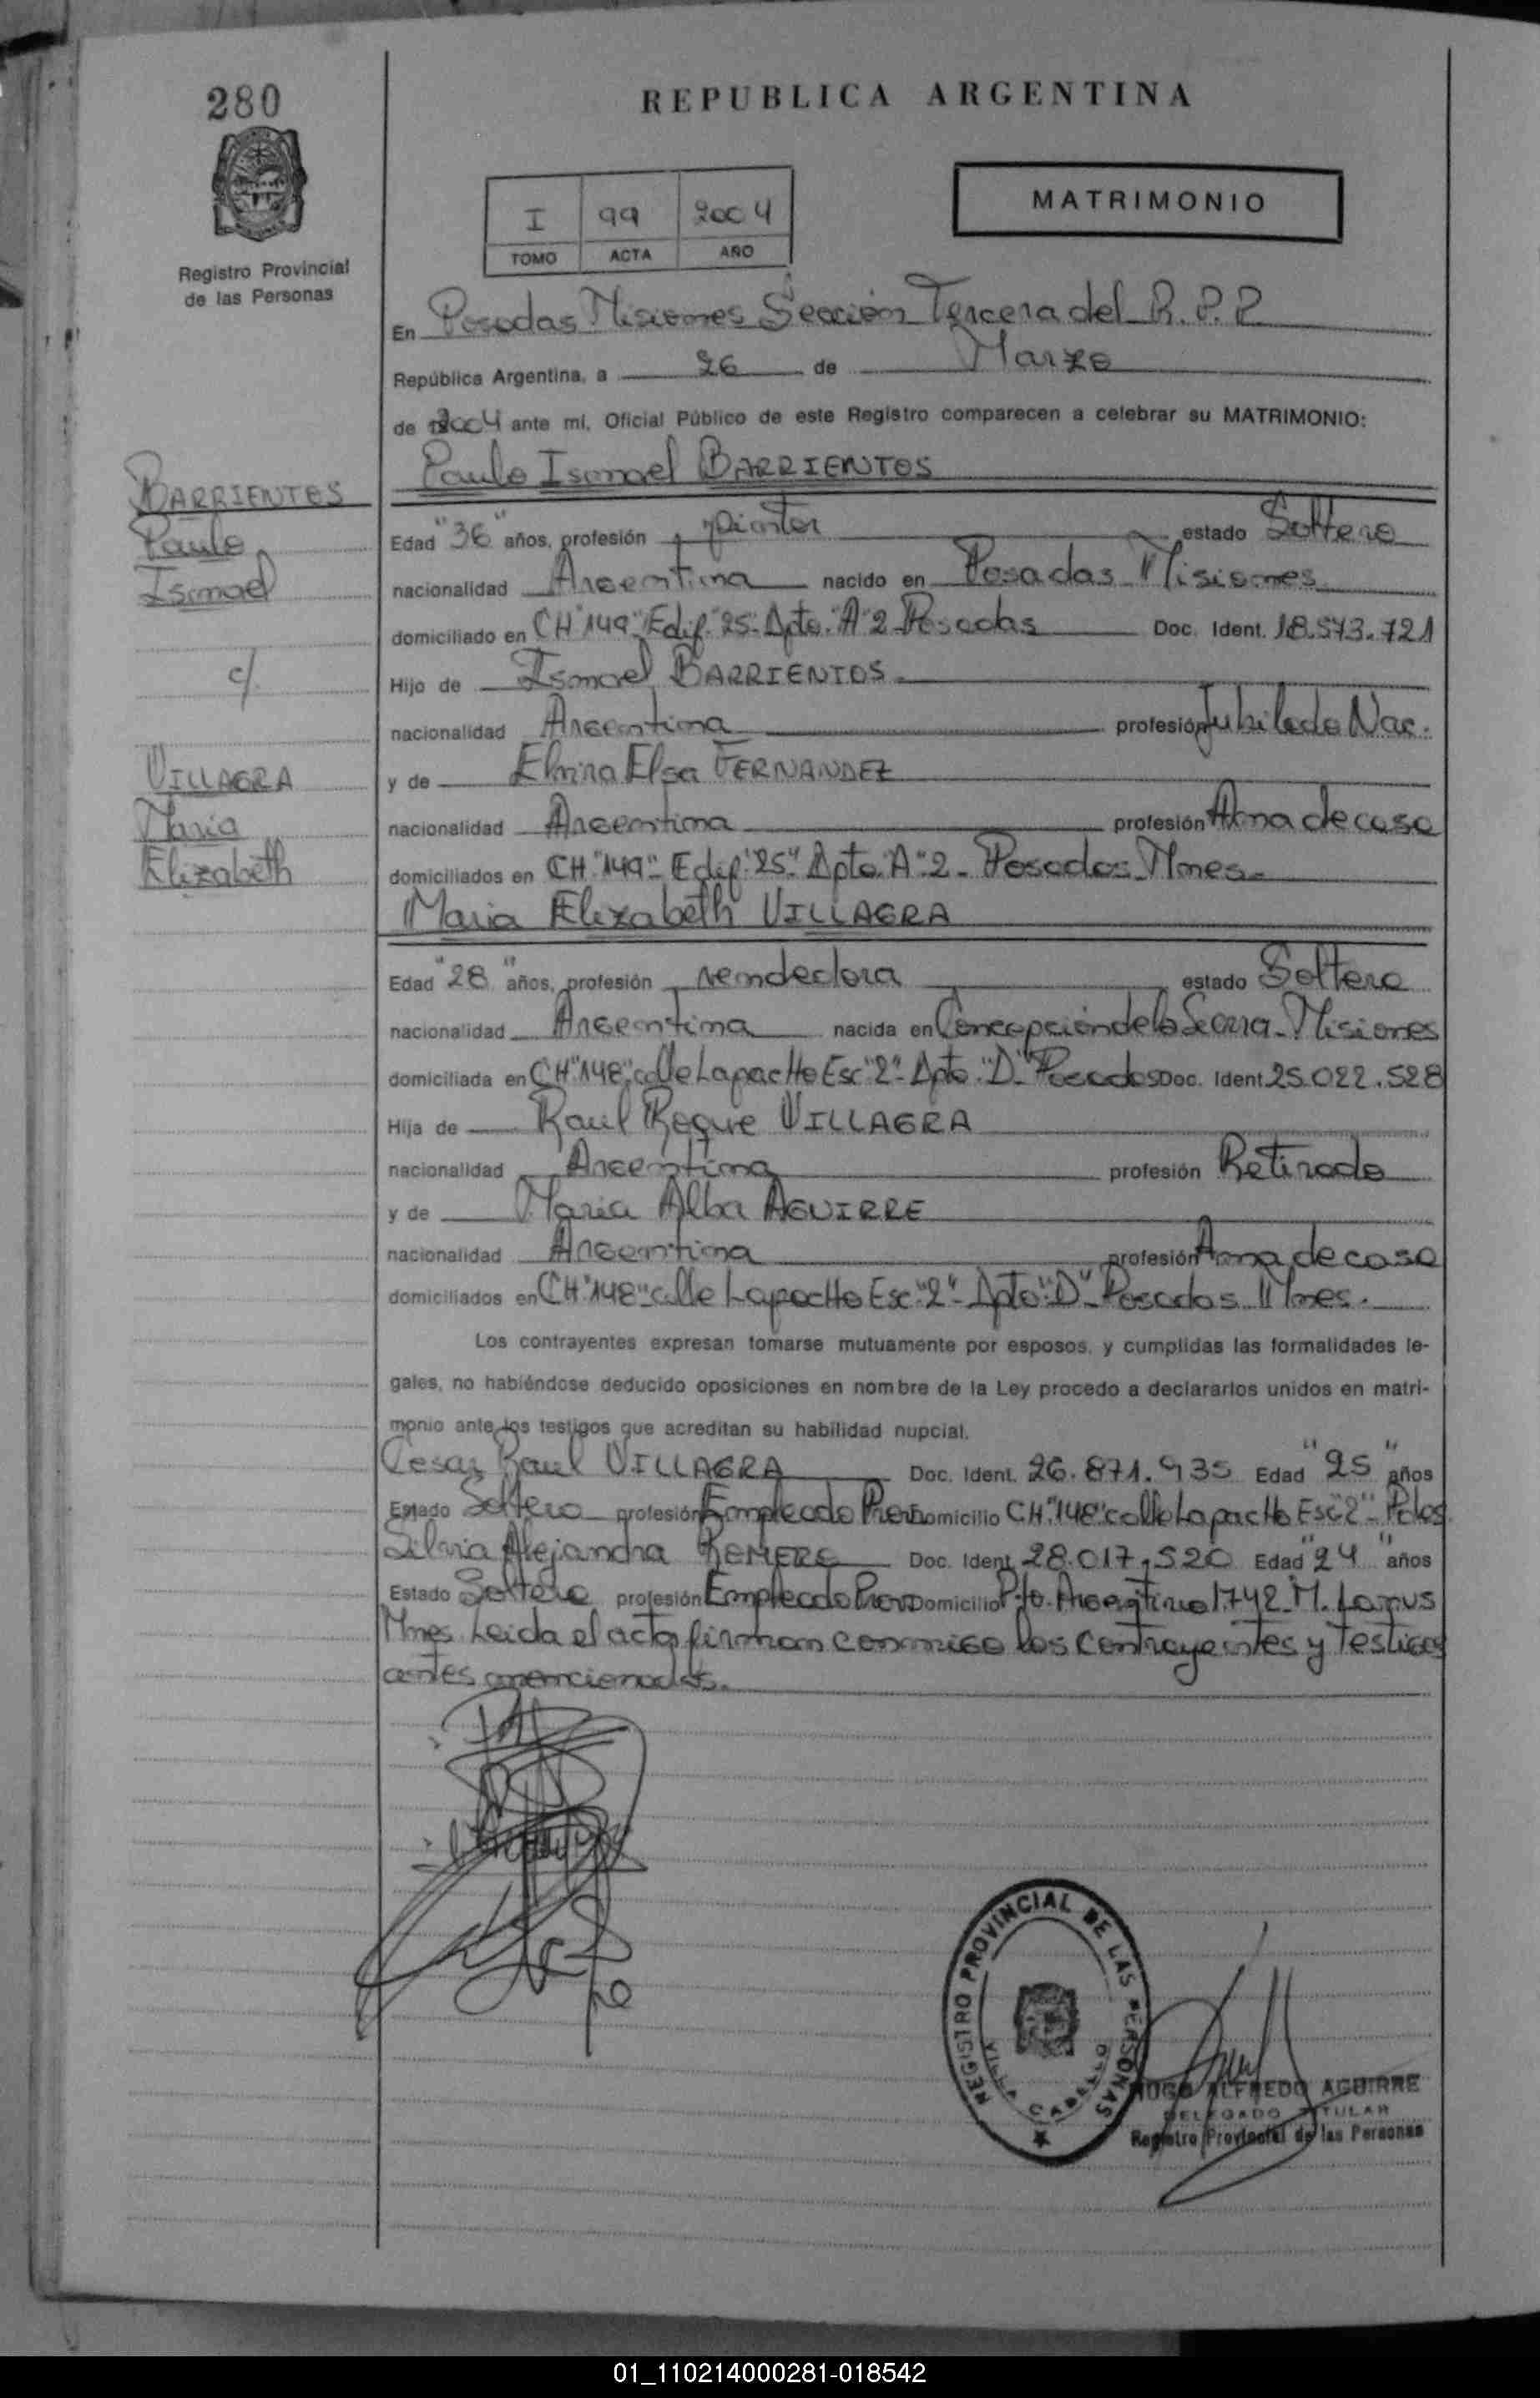 280
REPUBLICA ARGENTINA
MATRIMONIO
I 99 2004
TOMO ACTA AÑO
Registro Provincial
de las Personas
En Posadas Misiones Sección Tercera del R.P.P
República Argentina, a 26 de Marzo
de 2004 ante mí, Oficial Público de este Registro comparecen a celebrar su MATRIMONIO:
Paulo Ismael BARRIENTOS
BARRIENTOS
Paulo
Ismael
c/.
VILLAGRA
Maria
Elizabeth
Edad "36" años, profesión pintor estado Soltero
nacionalidad Argentina nacido en Posadas Misiones
domiciliado en CH"149" Edif."25" Dpto."A"2 Posadas Doc. Ident. 18.573.721
Hijo de Ismael BARRIENTOS
nacionalidad Argentina profesión Jubilado Nac.
y de Elsa FERNANDEZ
nacionalidad Argentina profesión Ama de casa
domiciliados en CH"149"- Edif."25" Dpto."A"2- Posadas Mnes.
Maria Elizabeth VILLAGRA
Edad "28" años, profesión vendedora estado Soltera
nacionalidad Argentina nacida en Concepción de la Sierra-Misiones
domiciliada en CH"148" calle Lapacho Esc"2"- Dpto."D"- Posadas Doc. Ident 25.022.528
Hija de Raul Roque VILLAGRA
nacionalidad Argentina profesión Retirado
y de Maria Alba AGUIRRE
nacionalidad Argentina profesión Ama de casa
domiciliados en CH"148" calle Lapacho Esc."2"- Dpto"D"- Posadas Mnes.
Los contrayentes expresan tomarse mutuamente por esposos, y cumplidas las formalidades le-
gales, no habiéndose deducido oposiciones en nombre de la Ley procedo a declararlos unidos en matri-
monio ante los testigos que acreditan su habilidad nupcial.
Cesar Raul VILLAGRA Doc. Ident. 26.871.935 Edad "25" años
Estado Soltero profesión Empleado Domicilio CH"148" calle Lapacho Esc"2"-
Silvia Alejandra Doc. Ident. 28.017.520 Edad "24" años
Estado Soltera profesión Empleada Domicilio Pto. Argentino 1742 M. Lanus
Mnes. Leida el acta firman conmigo los contrayentes y testigos
antes mencionados.
REGISTRO PROVINCIAL DE LAS PERSONAS
VILLA CABELLO
HUGO ALFREDO AGUIRRE
DELEGADO TITULAR
Registro Provincial de las Personas
01_110214000281-018542